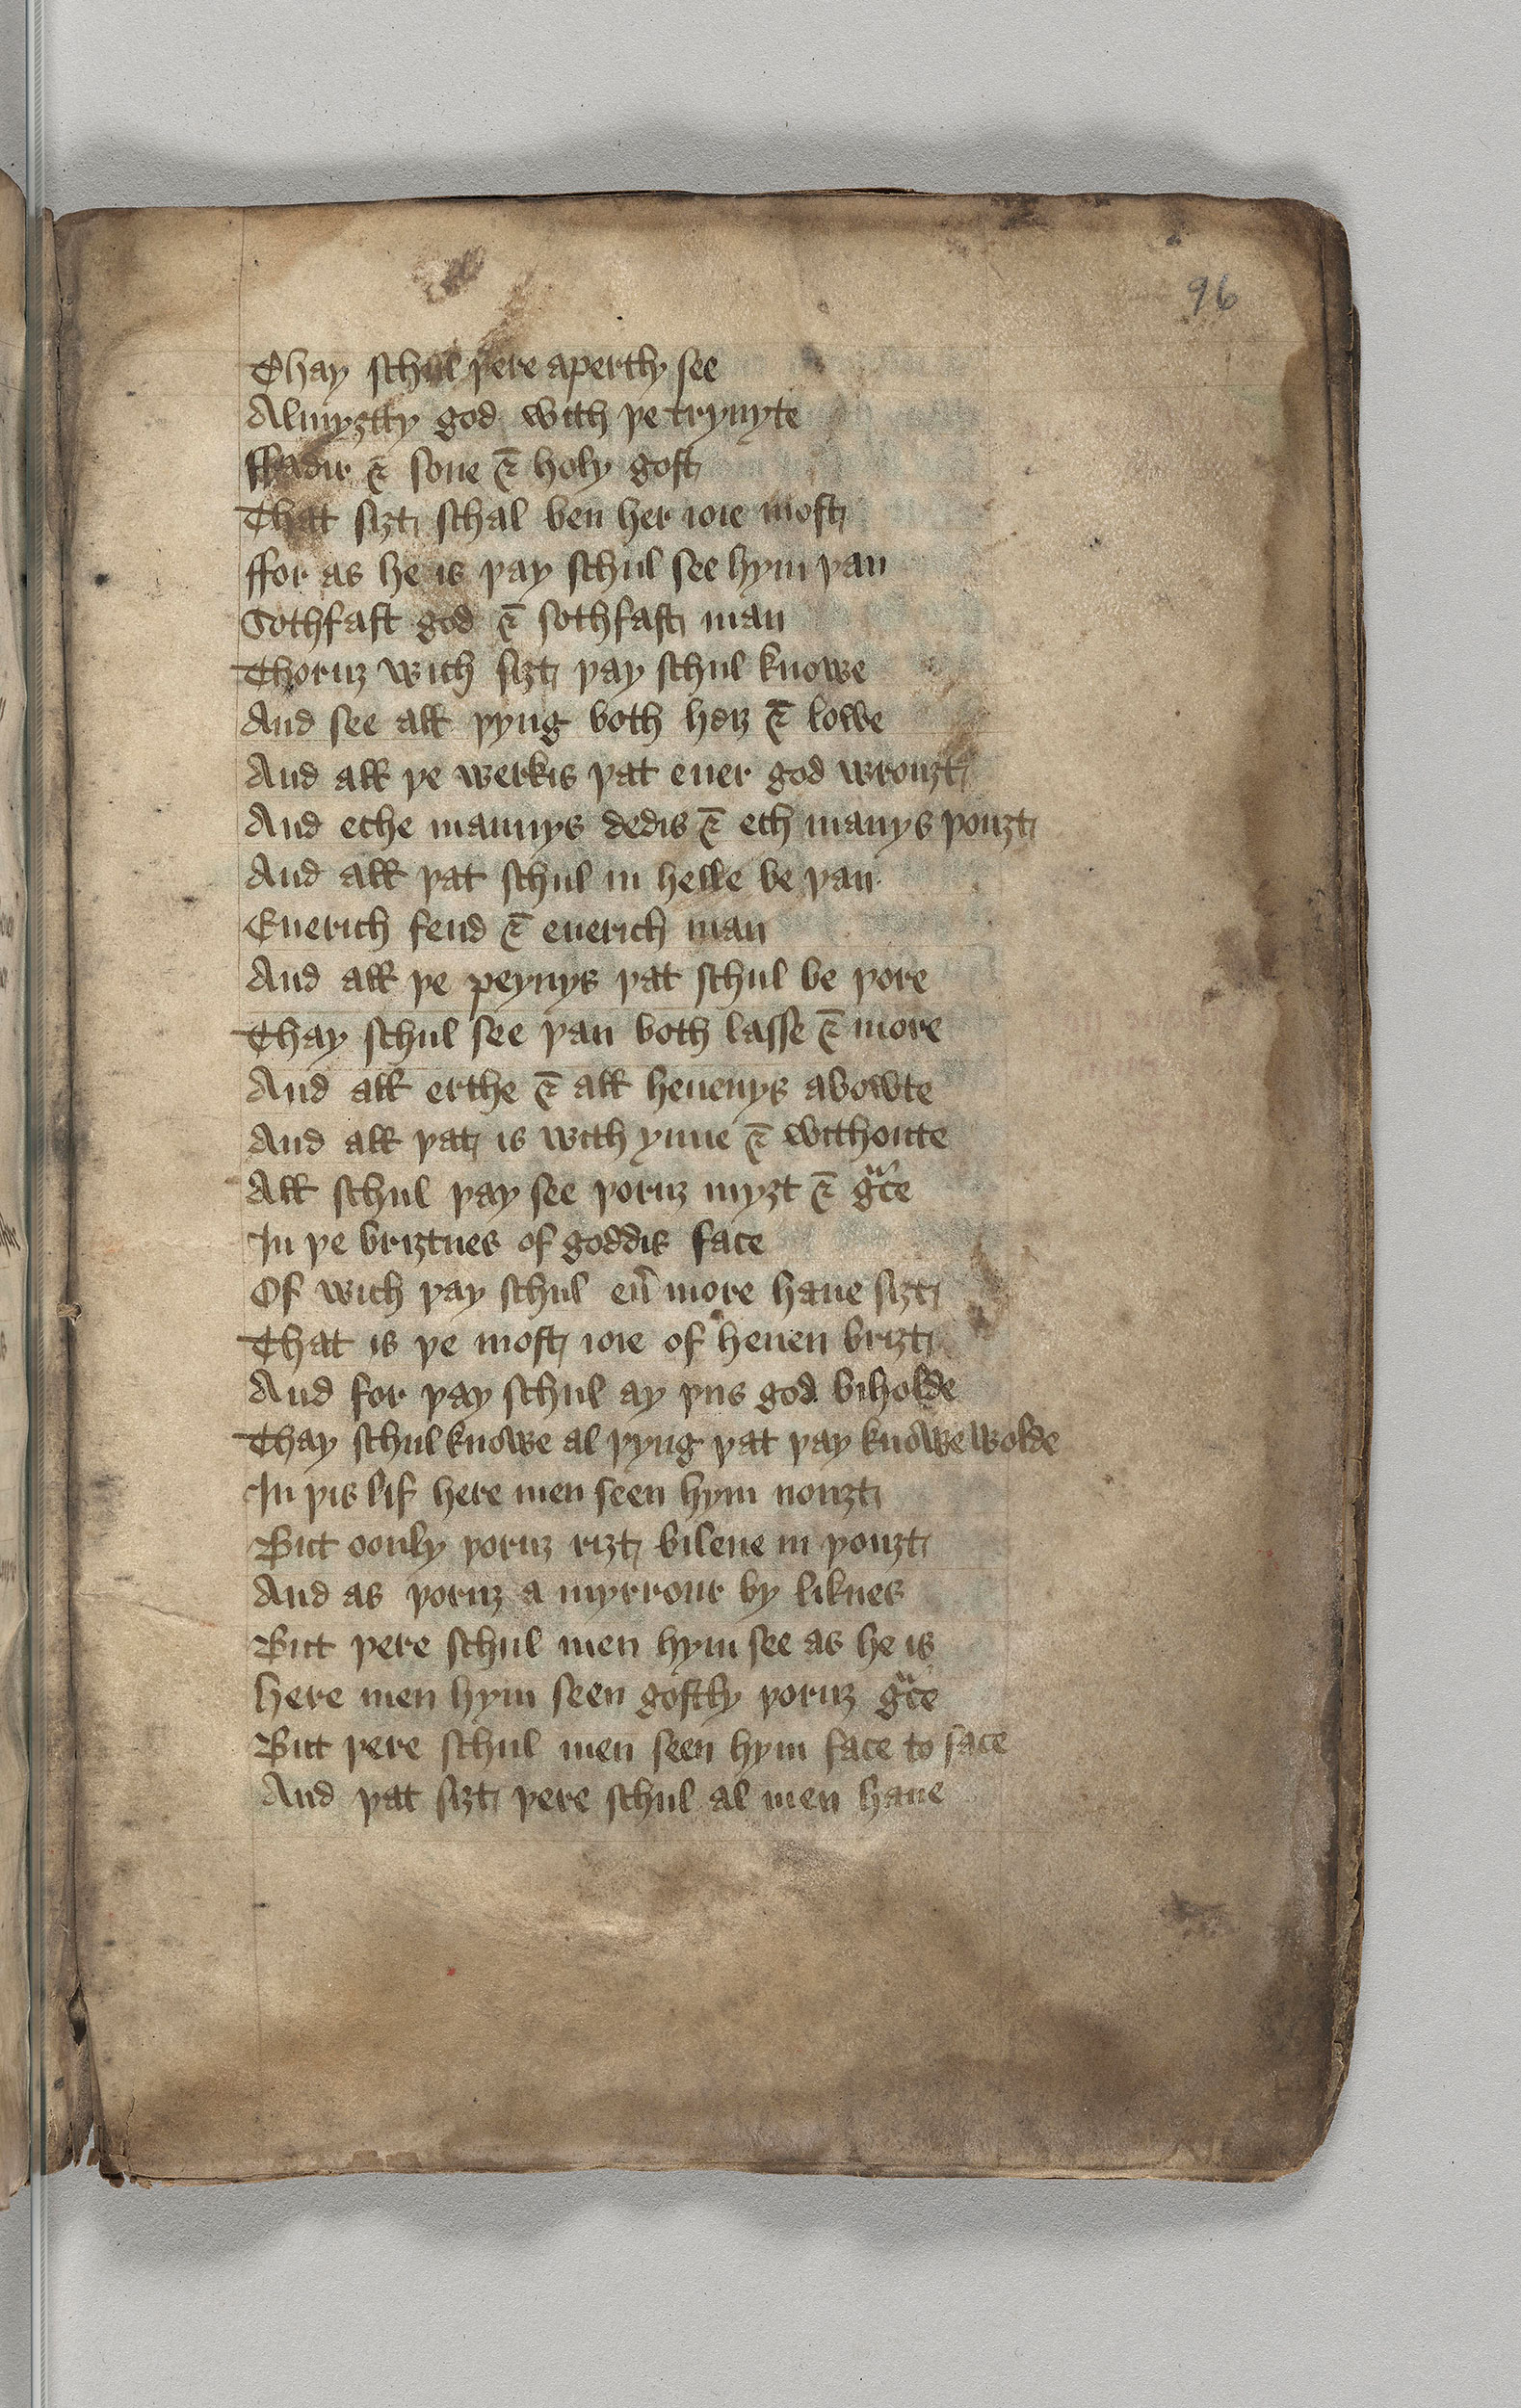 96
Thay schul þere apertly see
Almyȝtty god with þe trynyte
ffadir ⁊ sone ⁊ holy gost
That siȝt schal ben her ioie most
ffor as he is þay schul see hym þan
Sothfast god ⁊ sothfast man
Thoruȝ wich siȝt þay schul knowe
And see all þyng both heiȝ ⁊ lowe
And all þe werkis þat euer god wrouȝt
And eche mannys dedis ⁊ ech manys þouȝt
And all þat schul in helle be þan
Euerich fend ⁊ euerich man
And all þe peynys þat schul be þore
Thay schul see þan both lasse ⁊ more
And all erthe ⁊ all heuenys abowte
And all þat is with ynne ⁊ withoute
All schul þay see þoruȝ myȝt ⁊ gͣce
In þe briȝtnes of goddis face
Of wich þay schul eu̾ more haue siȝt
That is þe most ioie of heuen briȝt
And for þay schul ay þus god biholde
Thay schul knowe al þyng þat þay knowe wolde
In þis lif here men seen hym nouȝt
But oonly þoruȝ riȝt bileue in þouȝt
And as þoruȝ a myrrour by liknes
But þere schul men hym see as he is
here men hym seen gostly þoruȝ gͣce
But þere schul men seen hym face to face
And þat siȝt þere schul al men haue